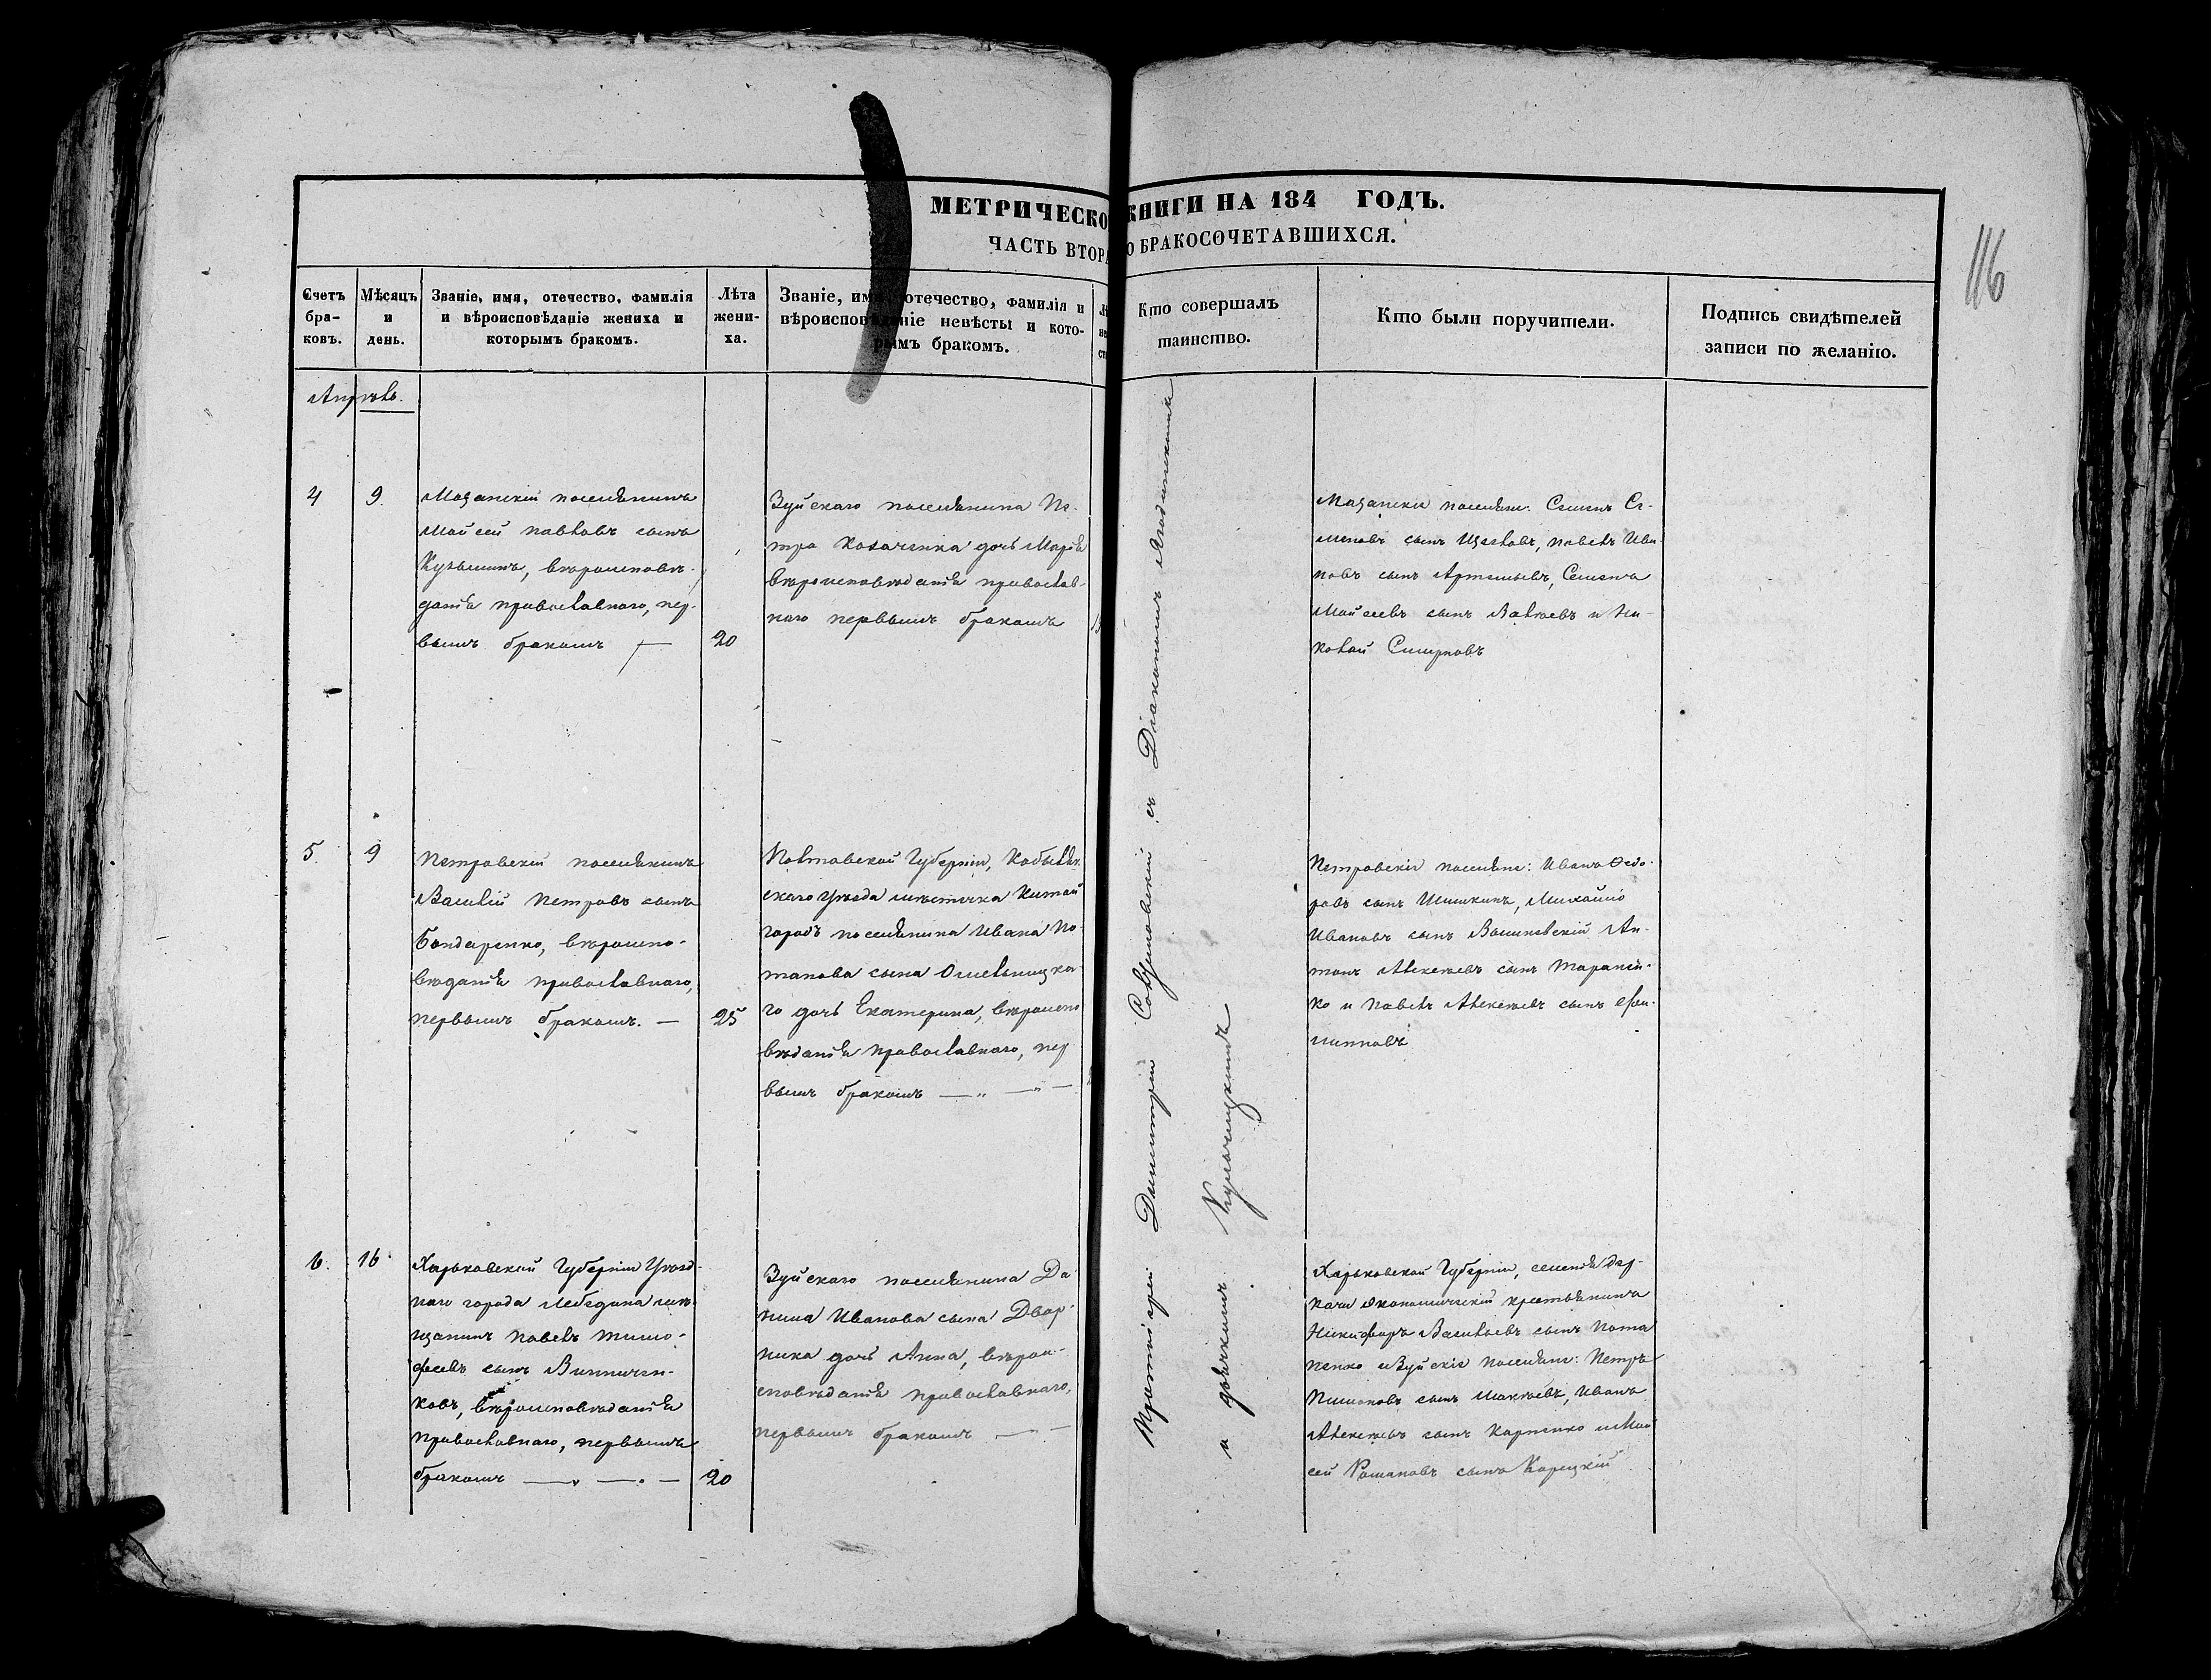 МЕТРИЧЕСКО КНИГИ НА 184 ГОДЪ.
ЧАСТЬ ВТОРА О БРАКОСОЧЕТАВШИХСЯ.
116
Счетъ бра-ковъ.
Мѣсяцъ и день.
Званіе, имя, отечество, фамилія
и вѣроисповѣданіе жениха и
которымъ бракомъ.
Лѣта жени-ха.
Званіе, имя, отечество, фамилія и
вѣроисповѣданіе невѣсты и кото-
рымъ бракомъ.
Кто совершалъ
таинство.
Кто были поручители.
Подпись свидѣтелей
записи по желанію.
Апрѣль.
4
9.
Мазанскій поселянинъ
Мойсей Павловъ сынъ
Кузьминъ, вѣроисповѣ-
данія православнаго, пер-
вымъ бракомъ
20
Зуйскаго поселянина Пе-
тра Козаченка дочь Марія
вѣроисповѣданія православ-
наго первымъ бракомъ
Мазански поселяне: Семенъ Се-
меновъ сынъ Щегловъ, Павелъ Ива
новъ сынъ Артемьевъ, Семенъ
Мойсеевъ сынъ и Ни-
колай Смирновъ
5.
9
Петровскій поселянинъ
Василій Петровъ сынъ
Бондаренко, вѣроиспо-
вѣданія православнаго,
первымъ бракомъ. —
25
Полтавской Губерніи, Кобыляк-
скаго Уѣзда мѣстечка Китай
городъ поселянина Ивана По-
тапова сына Омельницка-
го дочь Екатерина, вѣроиспо
вѣданія православнаго, пер
вымъ бракомъ — „ — „ —
Петровскіе поселяне: Иванъ Ѳедо-
ровъ сынъ Шишкинъ, Михайло
Ивановъ сынъ Ан-
тонъ Алексѣевъ сынъ Тараній-
ко и Павелъ Алексѣевъ сынъ Фи-
липповъ
6.
16
Харьковской Губерніи Уѣзд-
наго города Лебедина мѣ-
щанинъ Павелъ Тимо-
феевъ сынъ Винничен-
ковъ, вѣроисповѣданія
православнаго, первымъ
бракомъ — „ — „ —
20
Зуйскаго поселянина Да
нила Иванова сына Двор-
ника дочь Анна, вѣрои-
сповѣданія православнаго,
первымъ бракомъ — „ —
Харьковской Губерніи, селенія Дер-
качи экономическій крестьянинъ
Никифоръ Васильевъ сынъ Пота
пенко и Зуйскіе поселяне: Петръ
сынъ Мокѣевъ, Иванъ
Алексѣевъ сынъ Карпенко и Мой
сей Романовъ сынъ Корецкій
Протоіерей Димитрій съ Діакономъ
и дьячкомъ Кульчицкимъ